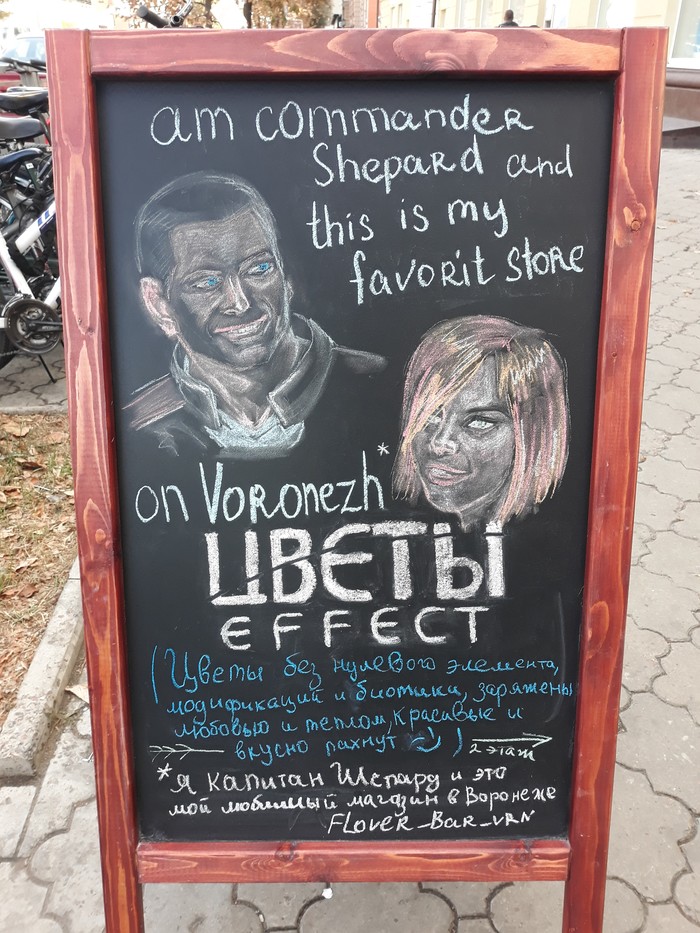 am commander
Shepard and
this is my
favorit store
on Voronezh*
ЦВЕТЫ
EFFECT
(Цветы без нулевого элемента,
модификаций и биотики, заряжены
любовью и теплом, красивые и
вкусно пахнут )
2 этаж
*я капитан Шепард и это
мой любимый магазин в Воронеже
FLover_Bar_vrn